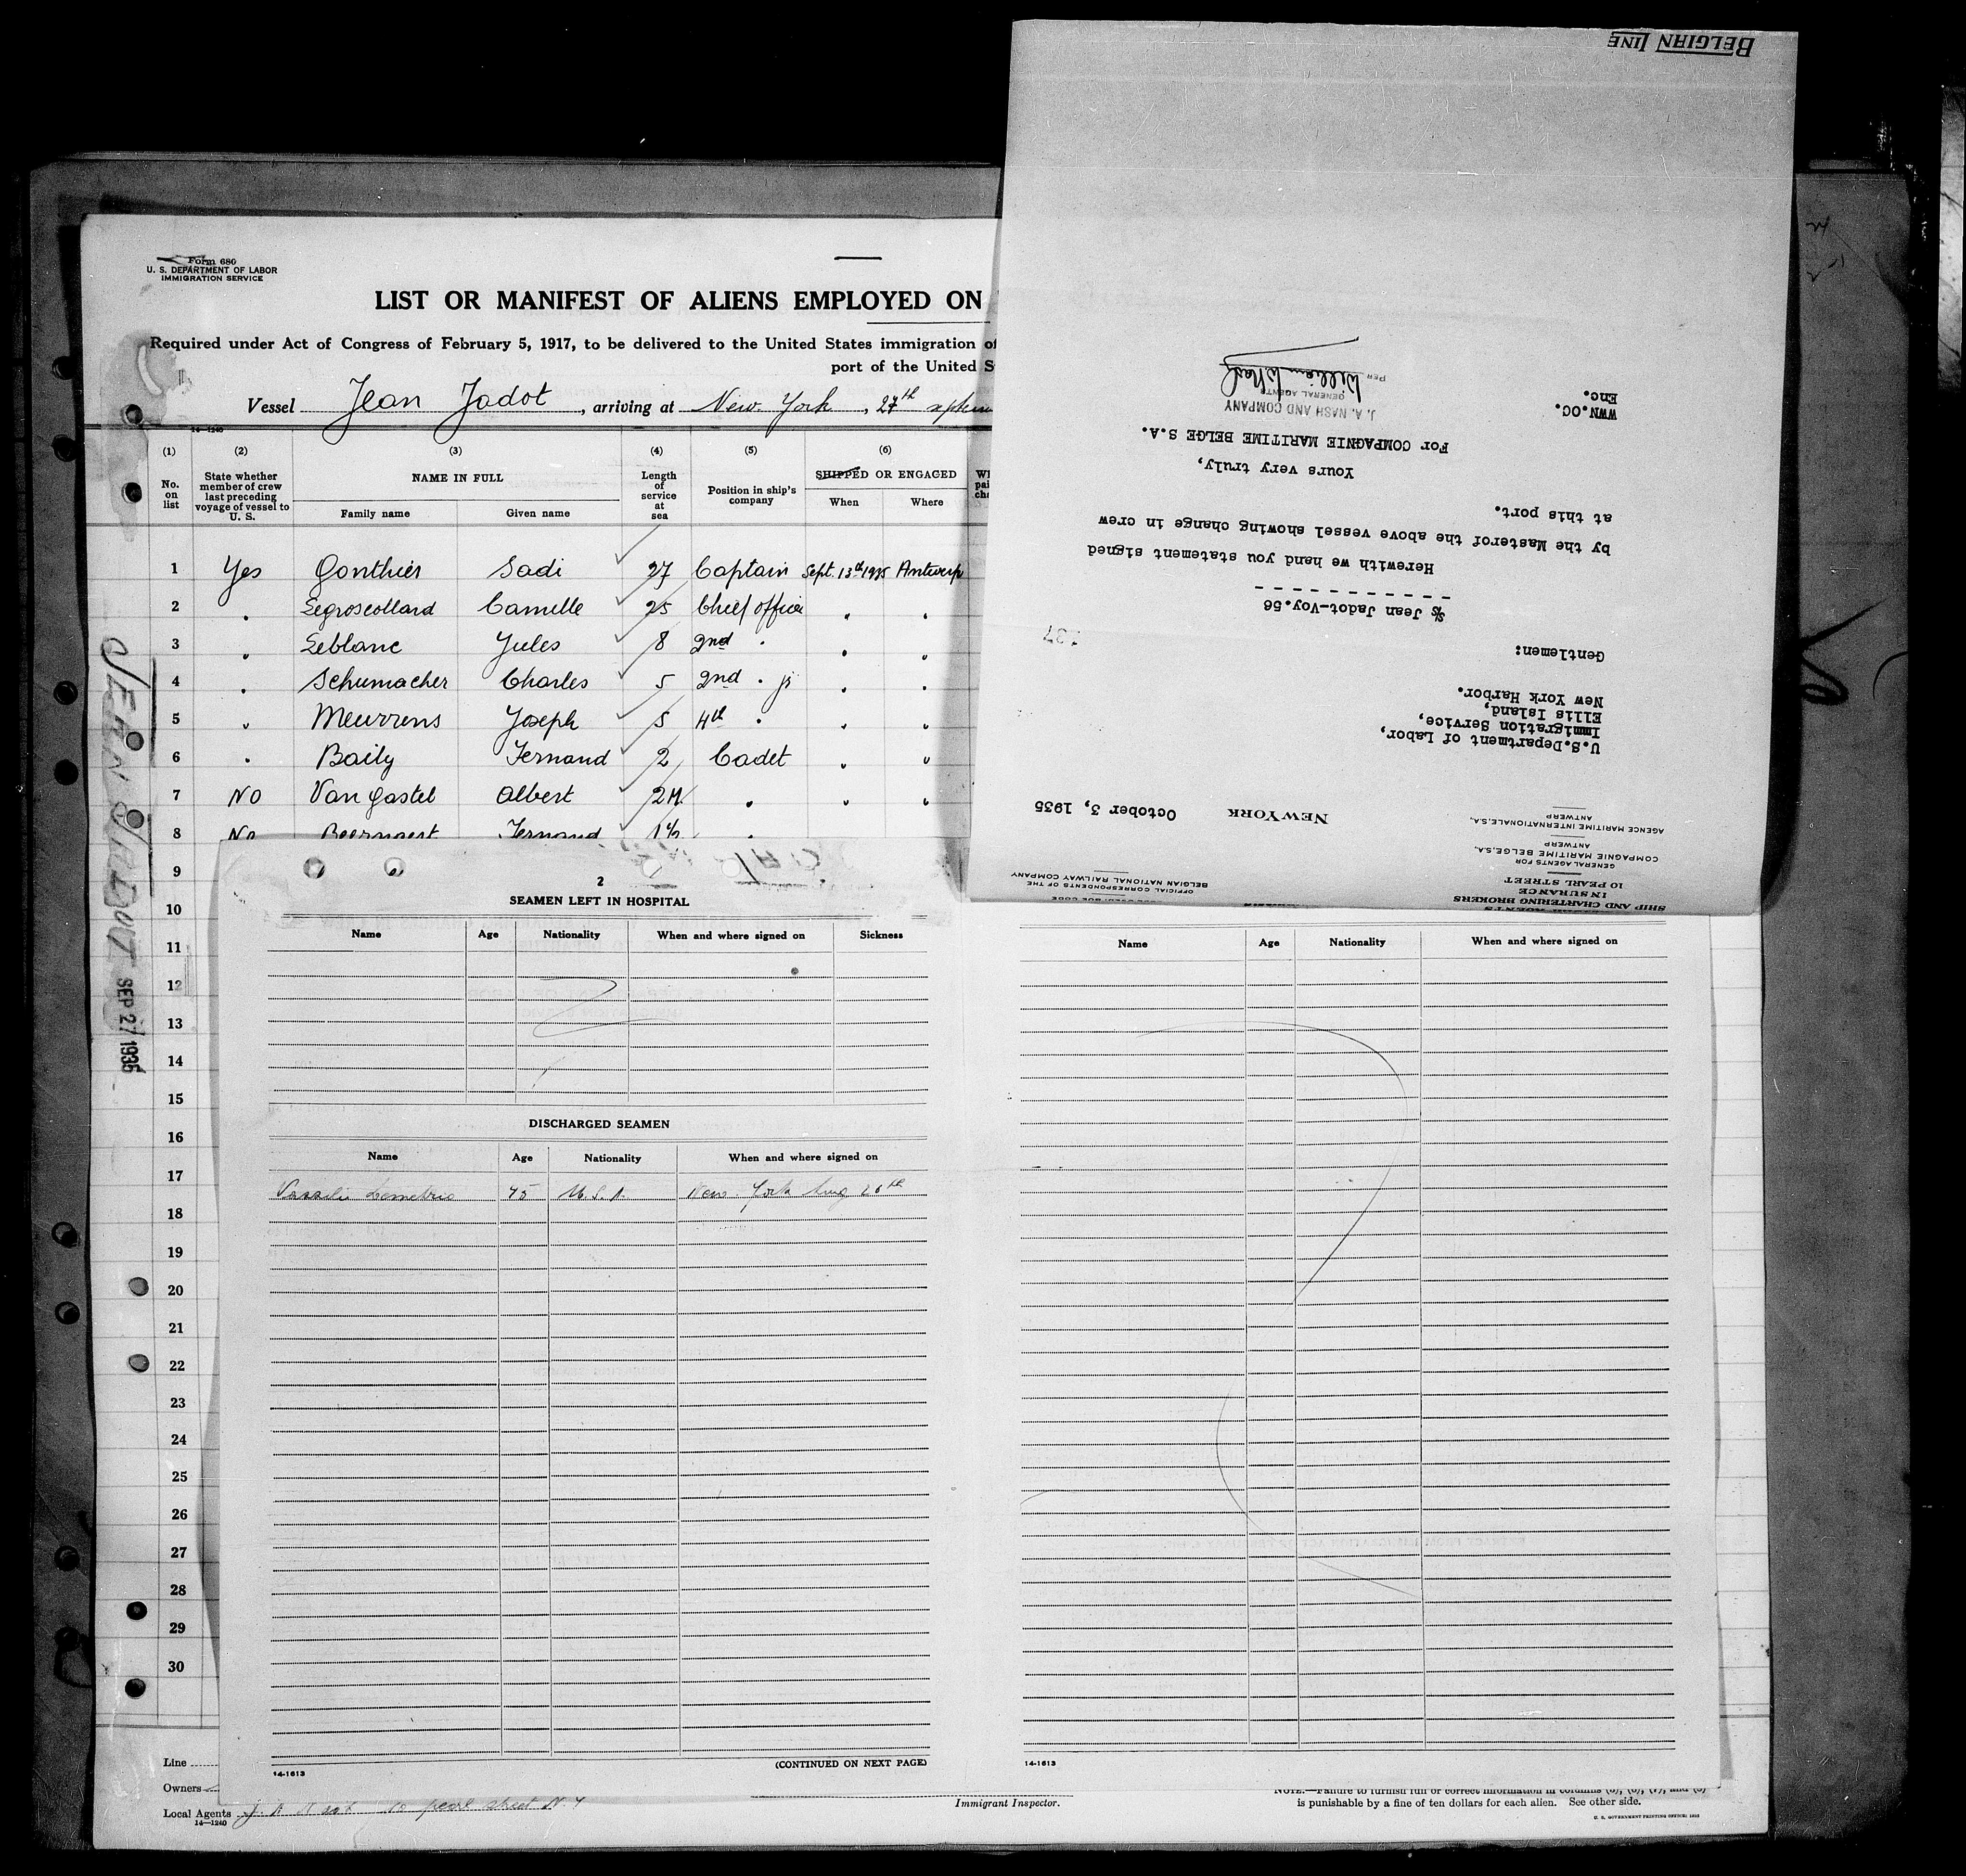 Form 680
U. S. DEPARTMENT OF LABOR
IMMIGRATION SERVICE
LIST OR MANIFEST OF ALIENS EMPLOYED ON
Required under Act of Congress of February 5, 1917, to be delivered to the United States immigration
port of the United
Vessel Jean Jadot, arriving at New York, 27th
14—1240
(1) (2) (3) (4) (5) (6)
No. on list State whether member of crew last preceding voyage of vessel to U. S. NAME IN FULL Length of service at sea Position in ship's company SHIPPED OR ENGAGED
Family name Given name When Where
1 Yes Gonthier Sadi 27 Captain Sept. 13th 1935 Antwerp
2 " Legroscollard Camille 25 Chief officer " "
3 " Leblanc Jules 8 2nd " " "
4 " Schumacher Charles 5 2nd " jr " "
5 " Meurrens Joseph 5 4th " " "
6 " Baily Fernand 2 Cadet " "
7 NO Van Gastel Albert 2M " " "
8 No Beernaert Fernand 1½ "
9
10
11
12
13
14
15
16
17
18
19
20
21
22
23
24
25
26
27
28
29
30
JEAN JADOT SEP 27 1935
Line
Owners
Local Agents J. A. Nash 10 pearl street N.Y
14—1240
Immigrant Inspector.
NOTE.—Failure to furnish full or correct information in columns
is punishable by a fine of ten dollars for each alien. See other side.
U. S. GOVERNMENT PRINTING OFFICE
2
SEAMEN LEFT IN HOSPITAL
Name Age Nationality When and where signed on Sickness
DISCHARGED SEAMEN
Name Age Nationality When and where signed on
Vassilie Demetrio 45 U.S.A. New York Aug 26th
(CONTINUED ON NEXT PAGE)
14-1613
Name Age Nationality When and where signed on
14-1613
SHIP AND CHARTERING BROKERS
INSURANCE
10 PEARL STREET
GENERAL AGENTS FOR
COMPAGNIE MARITIME BELGE, S.A.
ANTWERP
AGENCE MARITIME INTERNATIONALE, S.A.
ANTWERP
OFFICIAL CORRESPONDENTS OF THE
BELGIAN NATIONAL RAILWAY COMPANY
NEW YORK October 3, 1935
U.S.Department of Labor,
Immigration Service,
Ellis Island,
New York Harbor.
Gentlemen:
137
S/S Jean Jadot-Voy.56
- - - - - - - - - - - -
Herewith we hand you statement signed
by the Masterof the above vessel showing change in crew
at this port.
Yours very truly,
For COMPAGNIE MARITIME BELGE S.A.
J. A. NASH AND COMPANY
GENERAL AGENTS
PER
WWN.OC.
Enc.
BELGIAN LINE